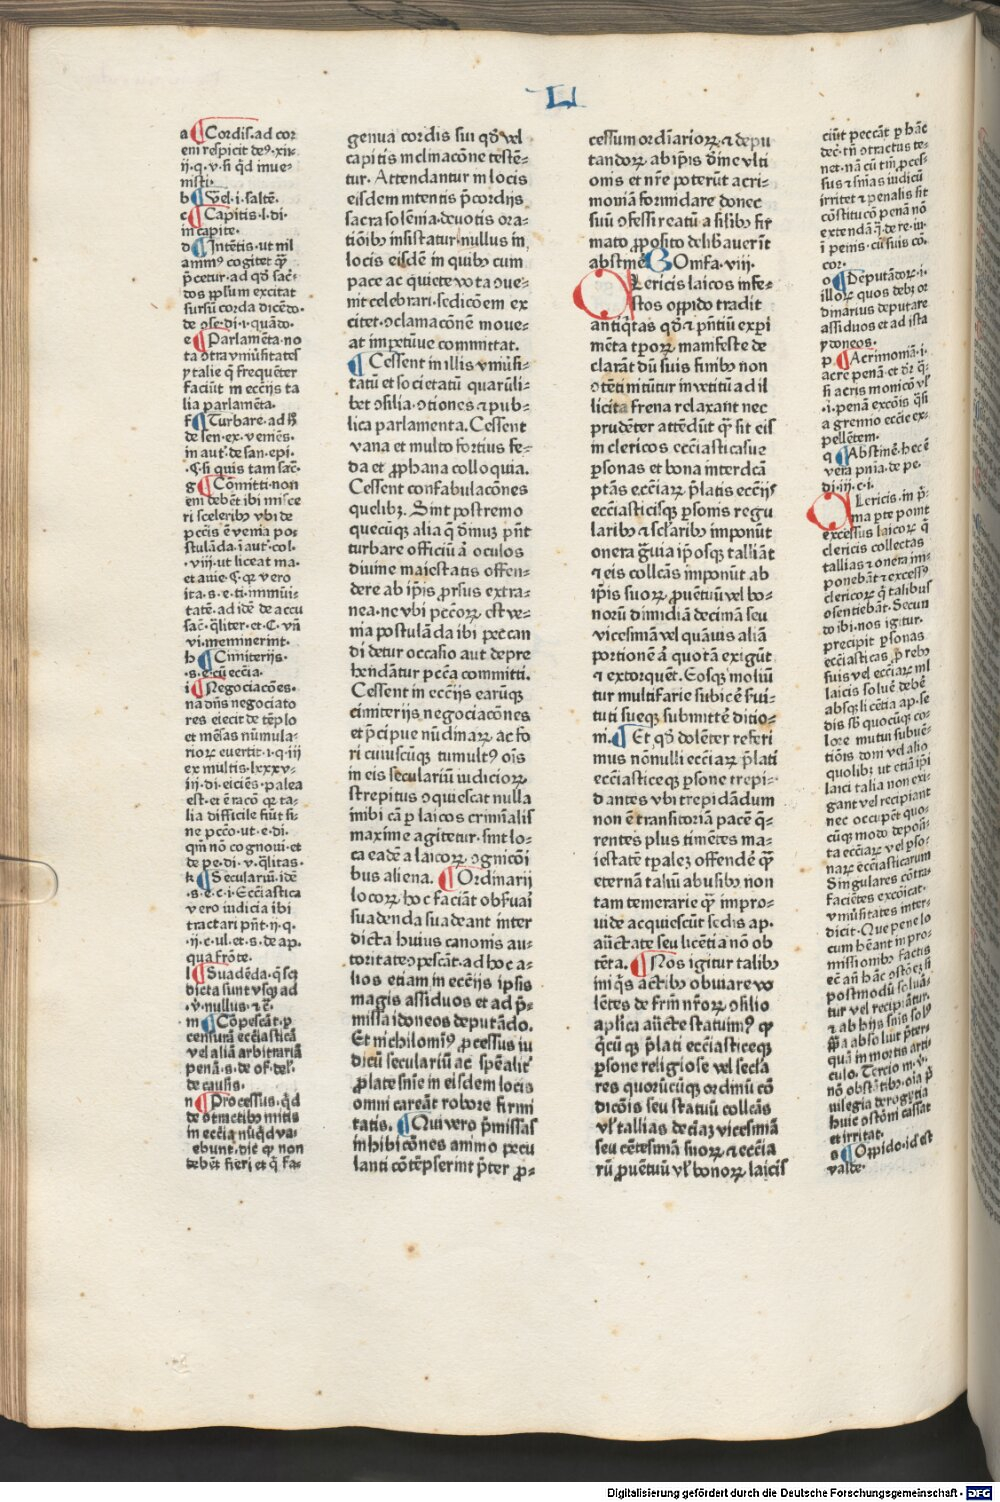 LI
a ¶ Cordis. ad cor
eni respicit deꝰ. xii.
ij. q. v. si qd̄ inue⸗
nisti.
b ¶ Vel. i. saltē.
c ¶ Capitis. l. di.
in capite.
d ¶ Intētis. ut nil
animꝰ cogitet q̄ꝫ
p̄cetur. ad qd̄ sac̄⸗
dos ip̄sum excitat
sursū corda dicēdo.
de ɔse. di. i. quādo.
e ¶ Parlamēta. no
ta ɔtra vniūsitates
ytalie q̄ frequēter
faciūt in ecc̄ijs ta
lia parlamēta.
f ¶ Turbare. ad h̄
de sen. ex. veniēs.
in aut̄. de san. epi.
C. si quis tam sac̄.
g ¶ Cōmitti. non
eni debēt ibi misce
ri sceleribꝰ vbi de
pcc̄is ē venia pos
tulāda. i aut̄. col.
viij. ut liceat ma.
et auie. C. qꝛ vero
ita. s. e. ti. immūi⸗
tatē. ad idē de accu
sac̄. q̄liter. et. C. vn̄
vi. meminerint.
h ¶ Cimiterijs.
s. e. cū eccīa.
i ¶ Negociacōes.
nā dn̄s negociato
res eiecit de tēplo
et mēsas nūmula⸗
rioꝝ euertit. i. q. iij
ex multis. lxxxv⸗
iij. di. eiciēs. palea
est. et ē racō qꝛ ta⸗
lia difficile fiūt si⸗
ne pcc̄o. ut. e. di.
qm̄ nō cognoui. et
de pe. di. v. q̄litas.
k ¶ Seculariū. idē
s. e. c. i. Ecc̄iastica
vero iudicia ibi
tractari pn̄t. ij. q.
ij. e. ul. et. s. de ap.
qua frōte.
l ¶ Suadēda. q̄ sc̄ꝫ
dicta sunt vsqꝫ ad
v̄. nullus. ⁊ c̄.
m ¶ Cōpescāt. p
censurā ecc̄iasticā
vel aliā arbitrariā
penā. s. de of. del.
de causis.
n ¶ Processus. qd̄
de ɔtractibꝰ initis
in eccīa nūqd̄ va⸗
ebunt. dic̄ qꝛ non
debēt fieri et q̄ fa⸗
genua cordis sui qd̄ vel
capitis inclinacōne testē⸗
tur. Attendantur in locis
eisdem intentis p̄cordijs
sacra solēnia. deuotis ora⸗
tiōibꝰ insistatur. nullus in
locis eisdē in quibꝰ cum
pace ac quiete vota ɔue⸗
nit celebrari. sedicōem ex
citet. ɔclamacōnē moue⸗
at impetūue committat.
¶ Cessent in illis vniūsi⸗
tatū et societatū quarūli⸗
bet ɔsilia. ɔtiones ⁊ pub⸗
lica parlamenta. Cessent
vana et multo fortius fe⸗
da et ꝓphana colloquia.
Cessent confabulacōnes
quelibꝫ. Sint postremo
quecūqꝫ alia q̄ diuinū pn̄t
turbare officiū ā oculos
diuine maiestatis offen⸗
dere ab ip̄is ꝓrsus extra⸗
nea. ne vbi pcc̄oꝝ est ve⸗
nia postulāda ibi peccan
di detur occasio aut depre
hendātur pcc̄a committi.
Cessent in ecc̄ijs earūqꝫ
cimiterijs negociacōnes
et p̄cipue nūdinaꝝ ac fo
ri cuiuscūqꝫ tumultꝰ ois
in eis seculariū iudicioꝝ
strepitus ɔquiescat nulla
inibi cā p laicos criminalis
maxime agitetur. sint lo⸗
ca eadē a laicoꝝ ɔgnicōi
bus aliena. ¶ Ordinarij
locoꝝ hoc faciāt obsuari
suadenda suadeant inter
dicta huius canonis au⸗
toritate ɔpescāt. ad hoc a⸗
lios etiam in ecc̄ijs ipsis
magis assiduos et ad p̄⸗
missa idoneos deputādo.
Et nichilominꝰ ꝓcessus iu
dicū seculariū ac sp̄ealit̄
ꝓlate sn̄ie in eisdem locis
omni careāt robore firmi
tatis. ¶ Qui vero p̄missas
inhibicōnes animo petu
lanti cōtēpserint p̄ter ꝓ⸗
cessum ordīarioꝝ ⁊ depu
tandoꝝ ab ip̄is dīne vlti
onis et nr̄e poterūt acri⸗
moniā formidare donec
suū ɔfessi reatū a silibꝰ fir
mato ꝓposito delibauerīt
abstinē. Bonifa. viij.
Clericis laicos infe⸗
stos oppido tradit
antiq̄tas qd̄ ⁊ pn̄tiū experi
mēta tpoꝝ manifeste de
clarāt dū suis finibꝰ non
ɔtēti nitūtur in vetitū ad il
licita frena relaxant nec
prudēter attēdūt q̄ꝫ sit eis
in clericos ecc̄iasticasue
psonas et bona interdcā
ptās ecciaꝝ p̄latis ecc̄ijs
ecc̄iasticisqꝫ psonis regu
laribꝰ ⁊ sclaribꝰ imponūt
onera gūia ip̄osqꝫ talliāt
⁊ eis collcās imponūt ab
ip̄is suoꝝ ꝓuētuū vel bo⸗
norū dimidiā decimā seu
vicesimā vel quāuis aliā
portionē ā quotā exigūt
⁊ extorquēt. Eosqꝫ moliū
tur multifarie subicē sui⸗
tuti sueqꝫ submittē ditio⸗
ni. ¶ Et qd̄ dolēter referi
mus nōnulli ecciaꝝ p̄lati
ecc̄iasticeqꝫ psone trepi⸗
dantes vbi trepidādum
non ē transitoriā pacē q̄⸗
rentes plus timētes ma⸗
iestatē tpalēꝫ offendē q̄ꝫ
eternā taliū abusibꝰ non
tam temerarie q̄ꝫ impro⸗
uide acquiescūt sedis ap.
auctate seu licētia nō ob
tēta. ¶ Nos igitur talibꝰ
iniq̄s actibꝰ obuiare vo
lētes de fr̄m nr̄oꝝ ɔsilio
aplica auc̄te statuimꝰ qꝫ
q̄cū qꝫ p̄lati ecc̄iasticeqꝫ
psone religiose vel secla
res quorūcūqꝫ ordinū cō
dicōis seu statuū collcās
vl̄ tallias deciaꝫ vicesimā
seu cētesimā suoꝝ ⁊ eccīa
rū ꝓuētuū vl̄ bonoꝝ laicis
ciūt peccāt p hāc
dec̄. tn̄ ɔtractus te⸗
net. nā cū tm̄ pcef⸗
sus ⁊ sn̄ias iudicū
irritet ⁊ penalis sit
cōstitucō penā nō
extendā q̄. de re. iu.
ī penis. cū suis cō.
cor.
o ¶ Deputādoꝝ. i.
illoꝝ quos debꝫ or
dinarius deputare
assiduos et ad ista
ydoneos.
p ¶ Acrimoniā. i.
acrē penā. et dr̄ q̄⸗
si acris monicō vl̄
i. penā excōis q̄si
a gremio ecc̄ie ex⸗
pellētem.
q ¶ Abstinē. hec ē
vera pn̄ia. de pe.
di. iij. c. i.
Clericis. in p̄⸗
ma pte ponit
excessus laicoꝝ q̄
clericis collectas
tallias ⁊ onera im⸗
ponebāt ⁊ excessꝰ
clericoꝝ q̄ talibus
ɔsentiebāt. Secun
do ibi. nos igitur.
precipit psonas
ecc̄iasticas ꝓ rebꝰ
suis vel ecciaꝝ nl̄
laicis soluē debē
absqꝫ licētia ap. se
dis sb̄ quocūqꝫ co⸗
lore mutui subuē⸗
tiōis doni vl̄ alio
quolibꝫ ut etiā ip̄i
laici talia non exi⸗
gant vel recipiant
nec occupēt quo⸗
cūqꝫ modo deposi⸗
ta ecciaꝝ vel pso⸗
naꝝ ecc̄iasticarum
Singulares cōtra⸗
faciētes excōicat.
vniūsitates inter⸗
dicit. Que pene lo
cum hēant in pro⸗
missionibꝰ factis
ec̄ an̄ hāc ɔstōeꝫ si
postmodū soluā⸗
tur vel recipiātur.
⁊ ab hijs sn̄is solꝰ
ppa absoluit p̄ter⸗
quā in mortis arti⸗
culo. Tercio in. v̄.
nō obstātibꝰ. oīa p̄
uilegia derogātia
huic ɔstōni cassat
et irritat.
a ¶ Oppido. id est
valde.
Digitalisierung gefördert durch die Deutsche Forschungsgemeinschaft - DFG